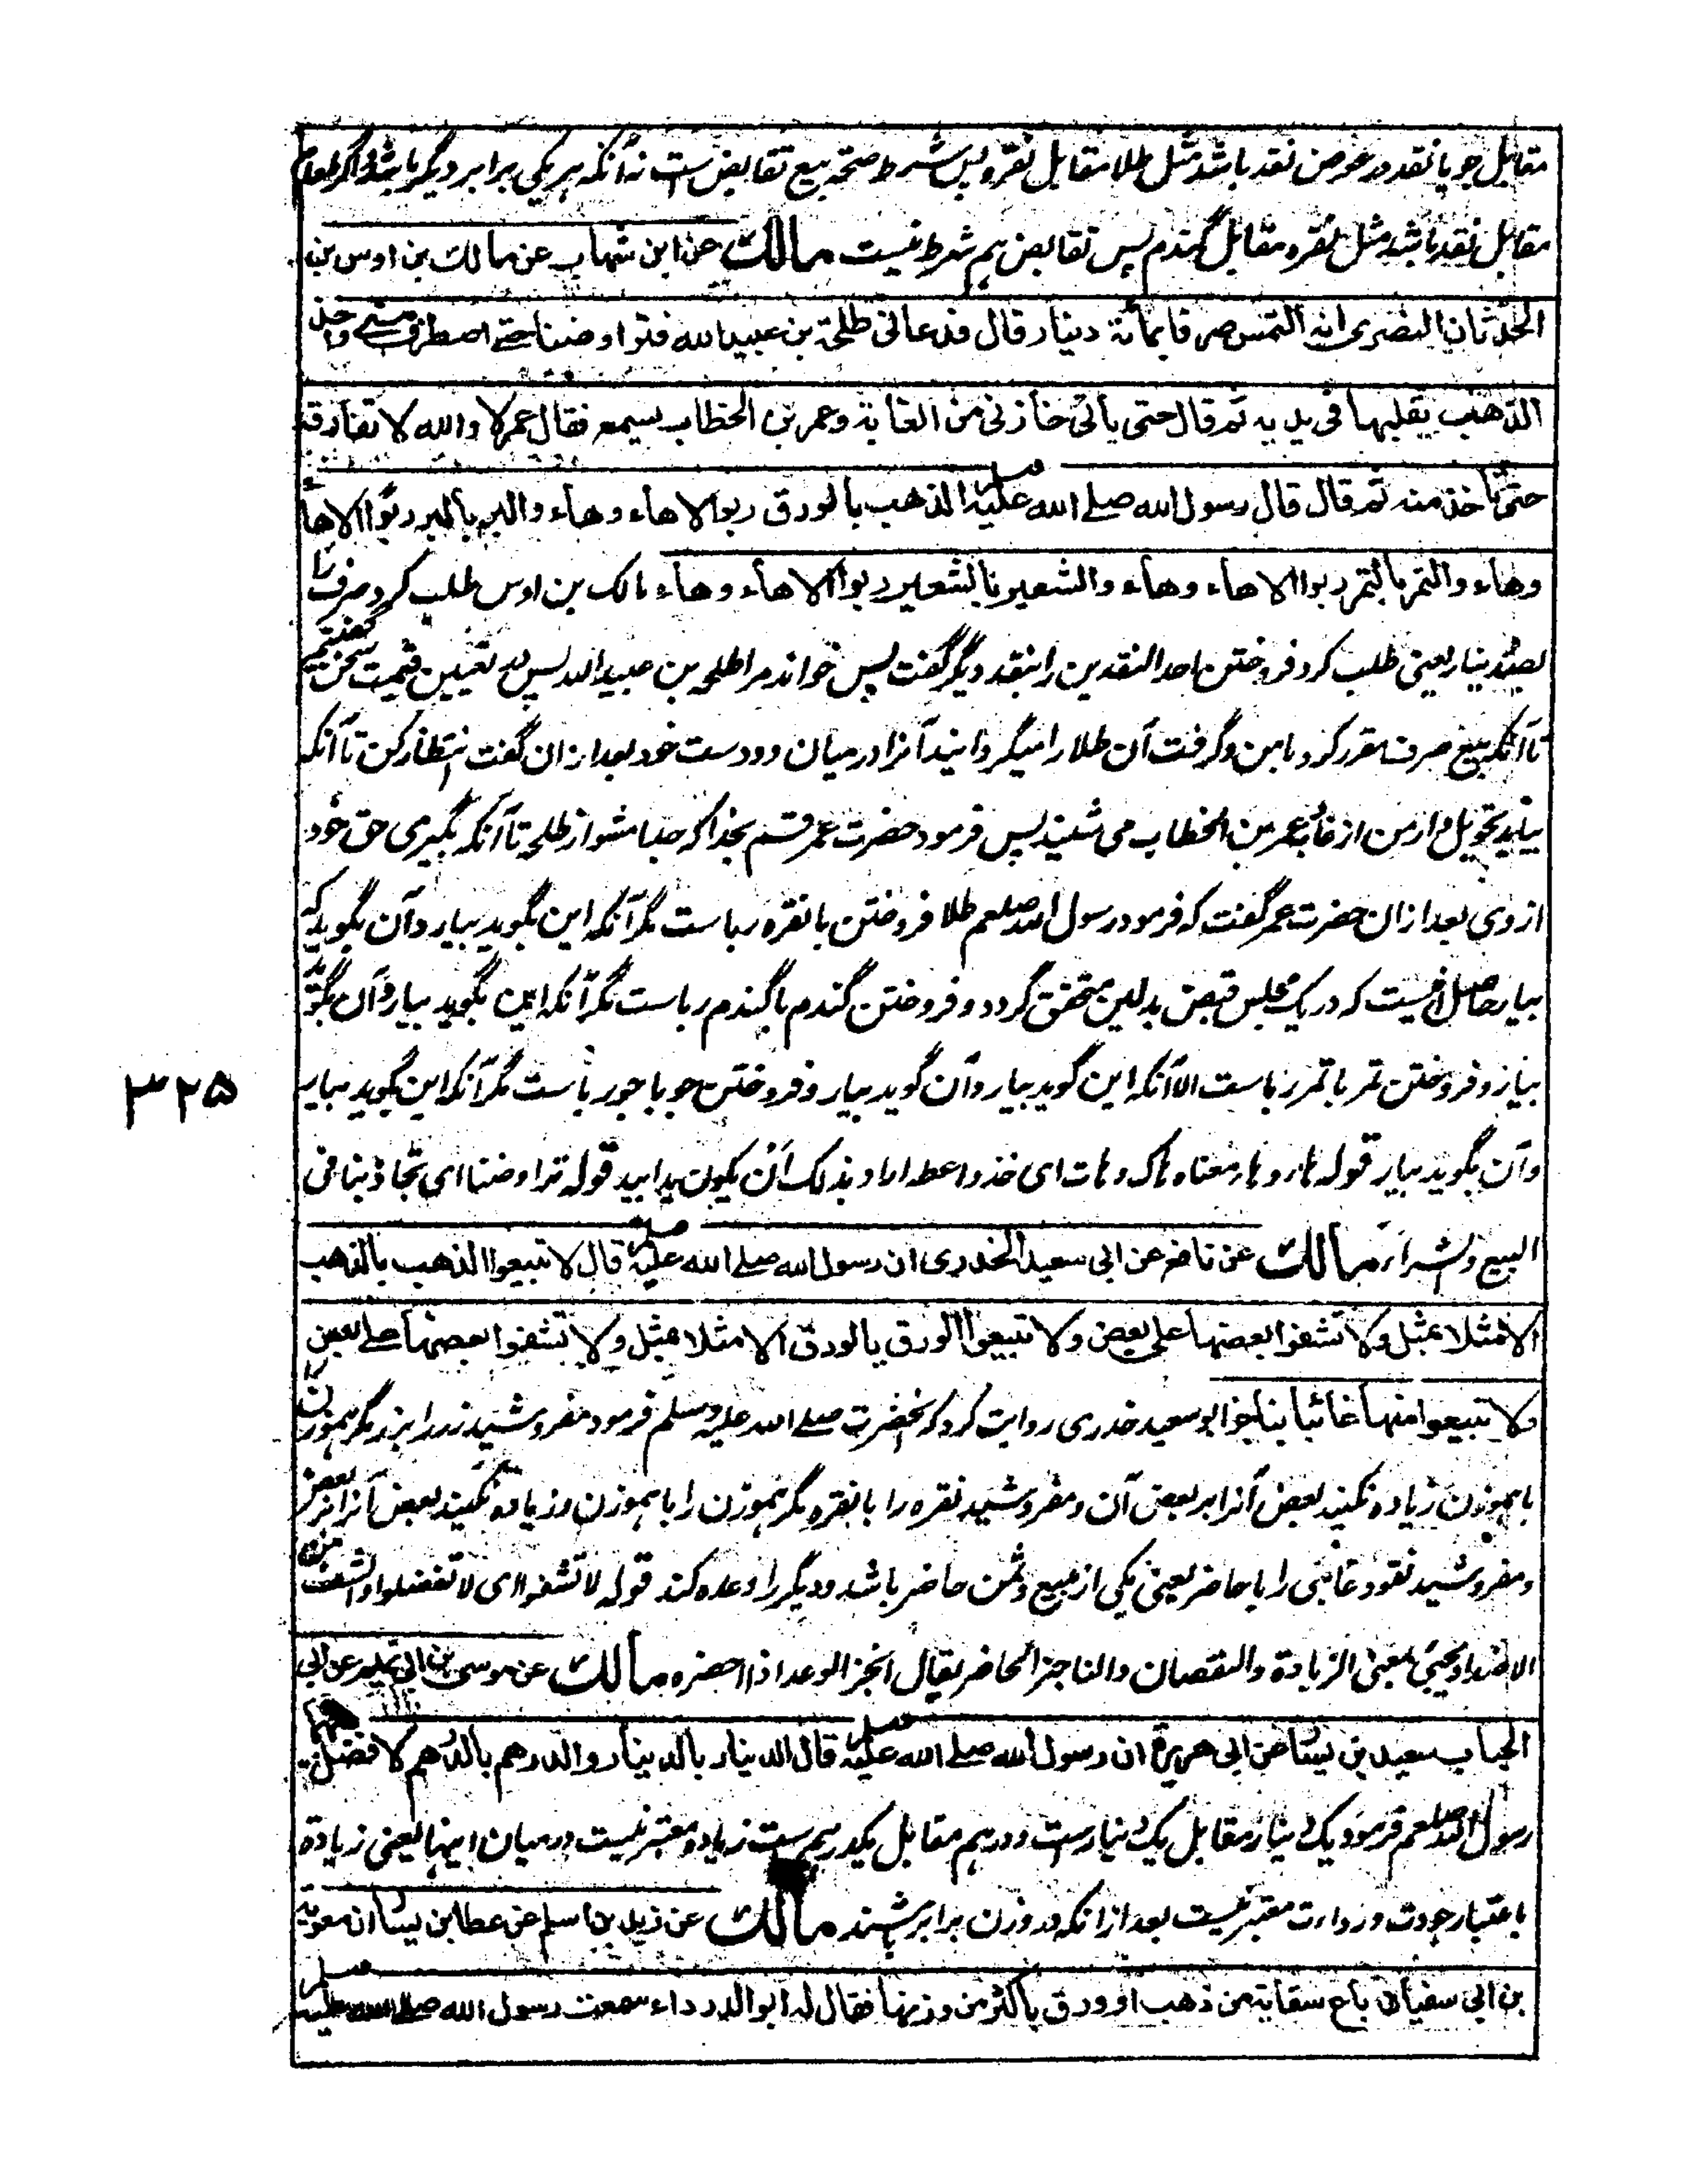 مقابل جو یا نقد در عوض نقد باشد مثل طلا مقابل نقره پس شرط صحة بیع تقابض ست نه آنکه هر یکی برابر دیگر باشد و اگر طعام
مقابل نقد باشد مثل نقره مقابل گندم پس تقابض هم شرط نیست مالك عن ابن شهاب عن مالك بن اوس بن
الحدثان النصری انه التمس صرفا بمائة دینار قال فدعانی طلحة بن عبیدالله فتراوضنا حتے اصطرف منے واخذ
الذهب یقلبها فی یدیه ثم قال حتی یاتی خازنی من الغابة وعمر بن الخطاب یسمع فقال عمر لا والله لا تفارقه
حتی تاخذ منه ثم قال قال رسول الله صلے الله علیه وسلم الذهب بالورق ربوا الا هاء وهاء والبر بالبر ربوا الا هاء
وهاء والتمر بالتمر ربوا الا هاء وهاء والشعیر بالشعیر ربوا الا هاء وهاء مالک بن اوس طلب کرد صرف را
بصد دینار یعنی طلب کرد فروختن احد النقدین را بنقد دیگر گفت پس خواند مرا طلحه بن عبید الله پس در تعیین قیمت سخن گفتیم
تا آنکه بیع صرف مقرر کرد با من و گرفت آن طلا را میگردانید آنرا در میان دو دست خود بعد ازان گفت انتظار کن تا آنکه
بیاید تحویلدار من از غابه و عمر بن الخطاب می شنید پس فرمود حضرت عمر قسم بخدا که جدا مشو از طلحه تا آنکه بگیری حق خود
از وی بعد ازان حضرت عمر گفت که فرمود رسول الله صلعم طلا فروختن با نقره رباست مگر آنکه این بگوید بیار و آن بگوید که
بیار حاصل آنست که در یک مجلس قبض بدلین متحقق گردد و فروختن گندم با گندم رباست مگر آنکه این بگوید بیار و آن بگوید
بیار و فروختن تمر با تمر رباست الا آنکه این گوید بیار و آن گوید بیار و فروختن جو با جو رباست مگر آنکه این بگوید بیار
و آن بگوید بیار قوله هاء و هاء معناه هاک و هات ای خذ و اعط اراد بذلک ان یکون یدا بید قوله تراوضنا ای تجاذبنا فی
البیع والشراء مالك عن نافع عن ابی سعید الخدری ان رسول الله صلے الله علیه وسلم قال لا تبیعوا الذهب بالذهب
الا مثلا بمثل ولا تشفوا بعضها علی بعض ولا تبیعوا الورق بالورق الا مثلا بمثل ولا تشفوا بعضها علے بعض
ولا تبیعوا منها غائبا بناجز ابو سعید خدری روایت کرد که آنحضرت صلے الله علیه وسلم فرمود مفروشید زر را بزر مگر هموزن را
با هموزن زیاده نکنید بعض آنرا بر بعض آن و مفروشید نقره را با نقره مگر هموزن را با هموزن و زیاده نکنید بعض آنرا بر بعض
و مفروشید نقود غائبی را با حاضر یعنی یکی از مبیع و ثمن حاضر باشد و دیگر را وعده کند قوله لا تشفوا ای لا تفضلوا والشف من
الاضداد یجیٔ بمعنی الزیادة والنقصان والناجز الحاضر یقال انجز الوعد اذا احضره مالك عن موسی بن ابی تمیم عن ابی
الحباب سعید بن یسار عن ابی هریرة ان رسول الله صلے الله علیه وسلم قال الدینار بالدینار والدرهم بالدرهم لا فضل بینهما
رسول الله صلعم فرمود یک دینار مقابل یک دینارست و درهم مقابل یکدرهم ست زیاده معتبر نیست درمیان اینها یعنی زیادة
باعتبار جودت و رداءت معتبر نیست بعد ازانکه در وزن برابر باشند مالك عن زید بن اسلم عن عطا بن یسار ان معویة
بن ابی سفیان باع سقایة من ذهب او ورق باکثر من وزنها فقال له ابو الدرداء سمعت رسول الله صلے الله علیه وسلم
۳۲۵